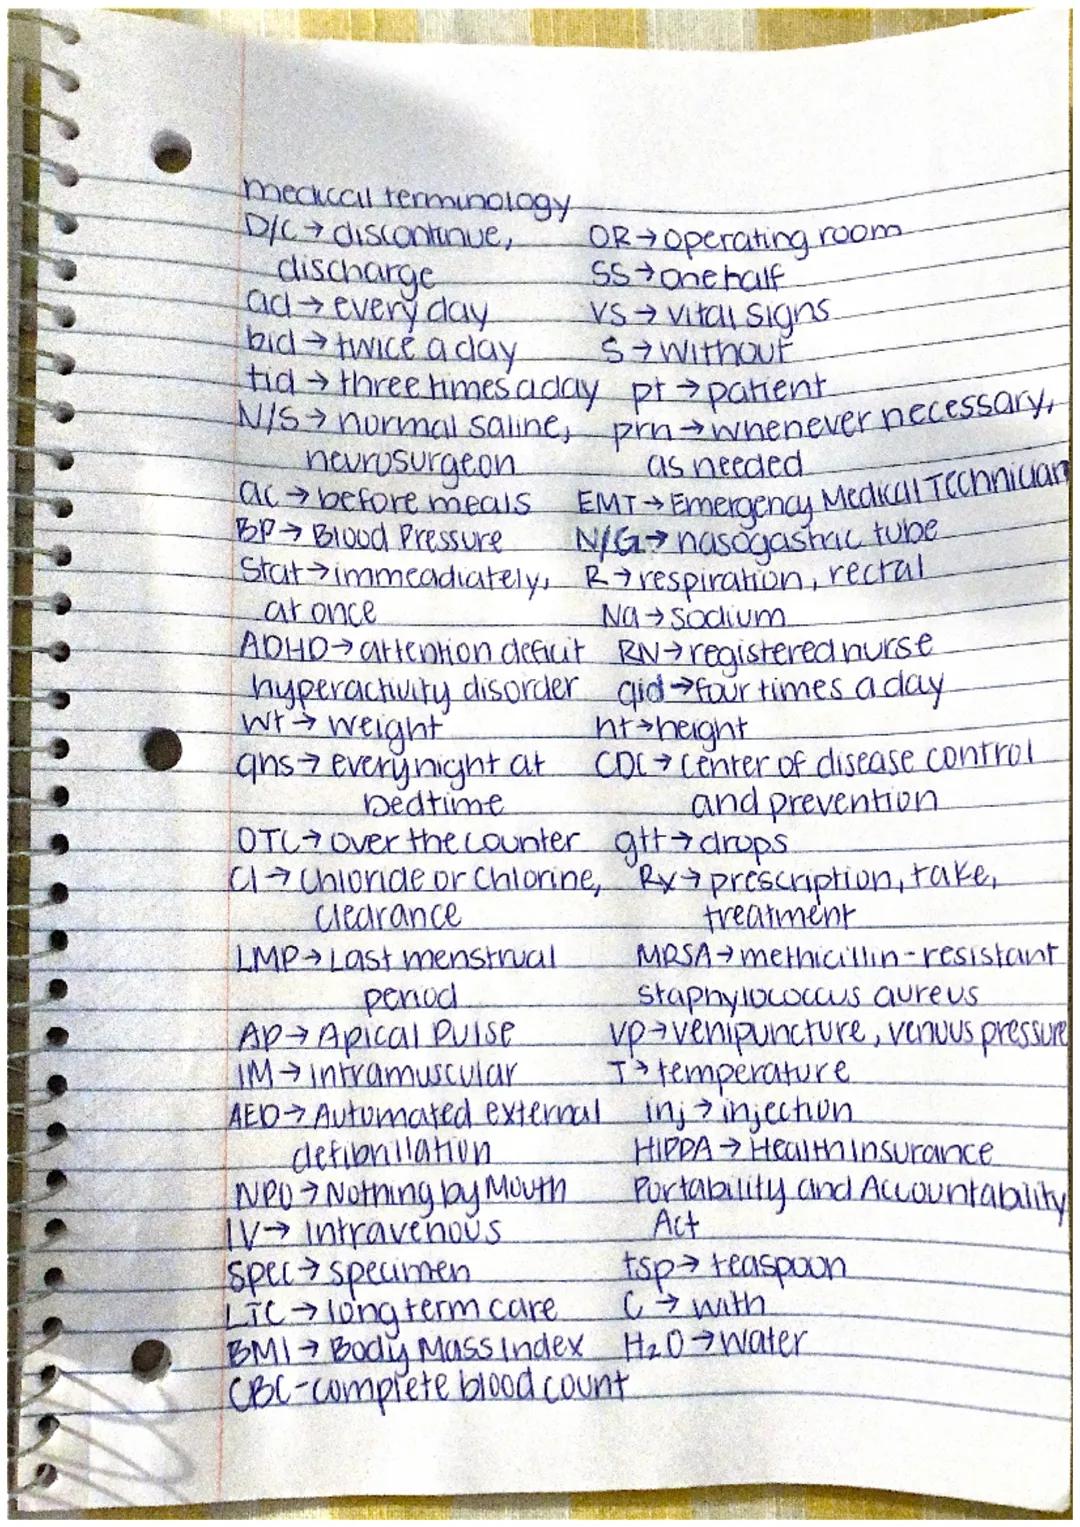 medical terminology
D/C → discontinue,
discharge
qd → every day
bid → twice a day
tid → three times a day
N/S → normal saline,
neurosurgeon
ac → before meals
BP → Blood Pressure
Stat → immeadiately,
at once
ADHD → attention deficit
hyperactivity disorder
Wt → weight
qhs → every night at
bedtime
OTC → over the counter
Cl → Chloride or Chlorine,
Clearance
LMP → Last menstrual
period
AP → Apical Pulse
IM → intramuscular
AED → Automated external
defibrillation
NPO → Nothing by Mouth
IV → Intravenous
spec → specimen
LTC → long term care
BMI → Body Mass Index
CBC - complete blood count
OR → operating room
SS → one half
VS → vital signs
S → without
pt → patient
prn → whenever necessary,
as needed
EMT → Emergency Medical Technician
N/G → nasogastric tube
R → respiration, rectal
Na → sodium
RN → registered nurse
qid → four times a day
ht → height
CDC → Center of disease control
and prevention
gtt → drops
Rx → prescription, take,
treatment
MRSA → methicillin-resistant
staphylococcus aureus
VP → venipuncture, venous pressure
T → temperature
inj → injection
HIPPA → Health Insurance
Portability and Accountability
Act
tsp → teaspoon
C → with
H₂O → Water